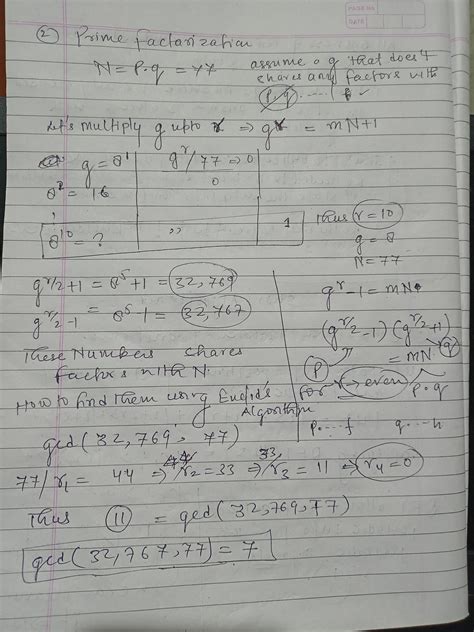 PAGE NO
DATE
② Prime factorization
N = P.q = 77
assume a g that does't
shares any factors with
P.q
Let's multiply g upto r ⇒ g^r = mN+1
g = 8^1
g^r/77 ⇒ 0
8^2 = 16
0
8^10 = ?
,,
1
Thus r = 10
g = 8
N = 77
g^{r/2}+1 = 8^5+1 = 32,769
g^{r/2}-1 = 8^5-1 = 32,767
g^r-1 = mN
(g^{r/2}-1) (g^{r/2}+1)
= mN
P
q
for r → even
P.q
P....f
q....h
These Numbers shares
factors with N.
How to find them using Euclid's
Algorithm
gcd(32,769, 77)
77/r1 = 44 ⇒ r2 = 33 ⇒ r3 = 11 ⇒ r4 = 0
44
33,
Thus 11 = gcd(32,769,77)
gcd(32,767,77) = 7